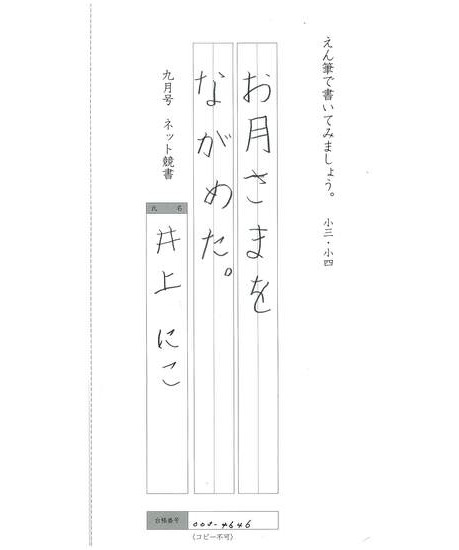 えん筆で書いてみましょう。 小三・小四
お月さまを
ながめた。
九月号 ネット競書
氏 名
井上 にこ
台帳番号 008-4646
(コピー不可)